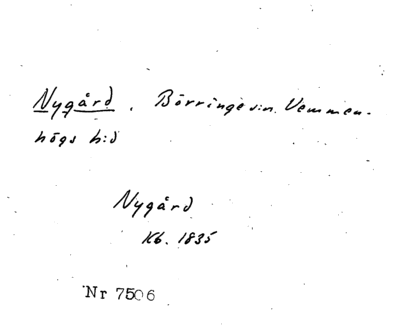 Nygård, Börringe s:n. Vemmen-
högs h:d
Nygård
Kb. 1835
Nr 7506